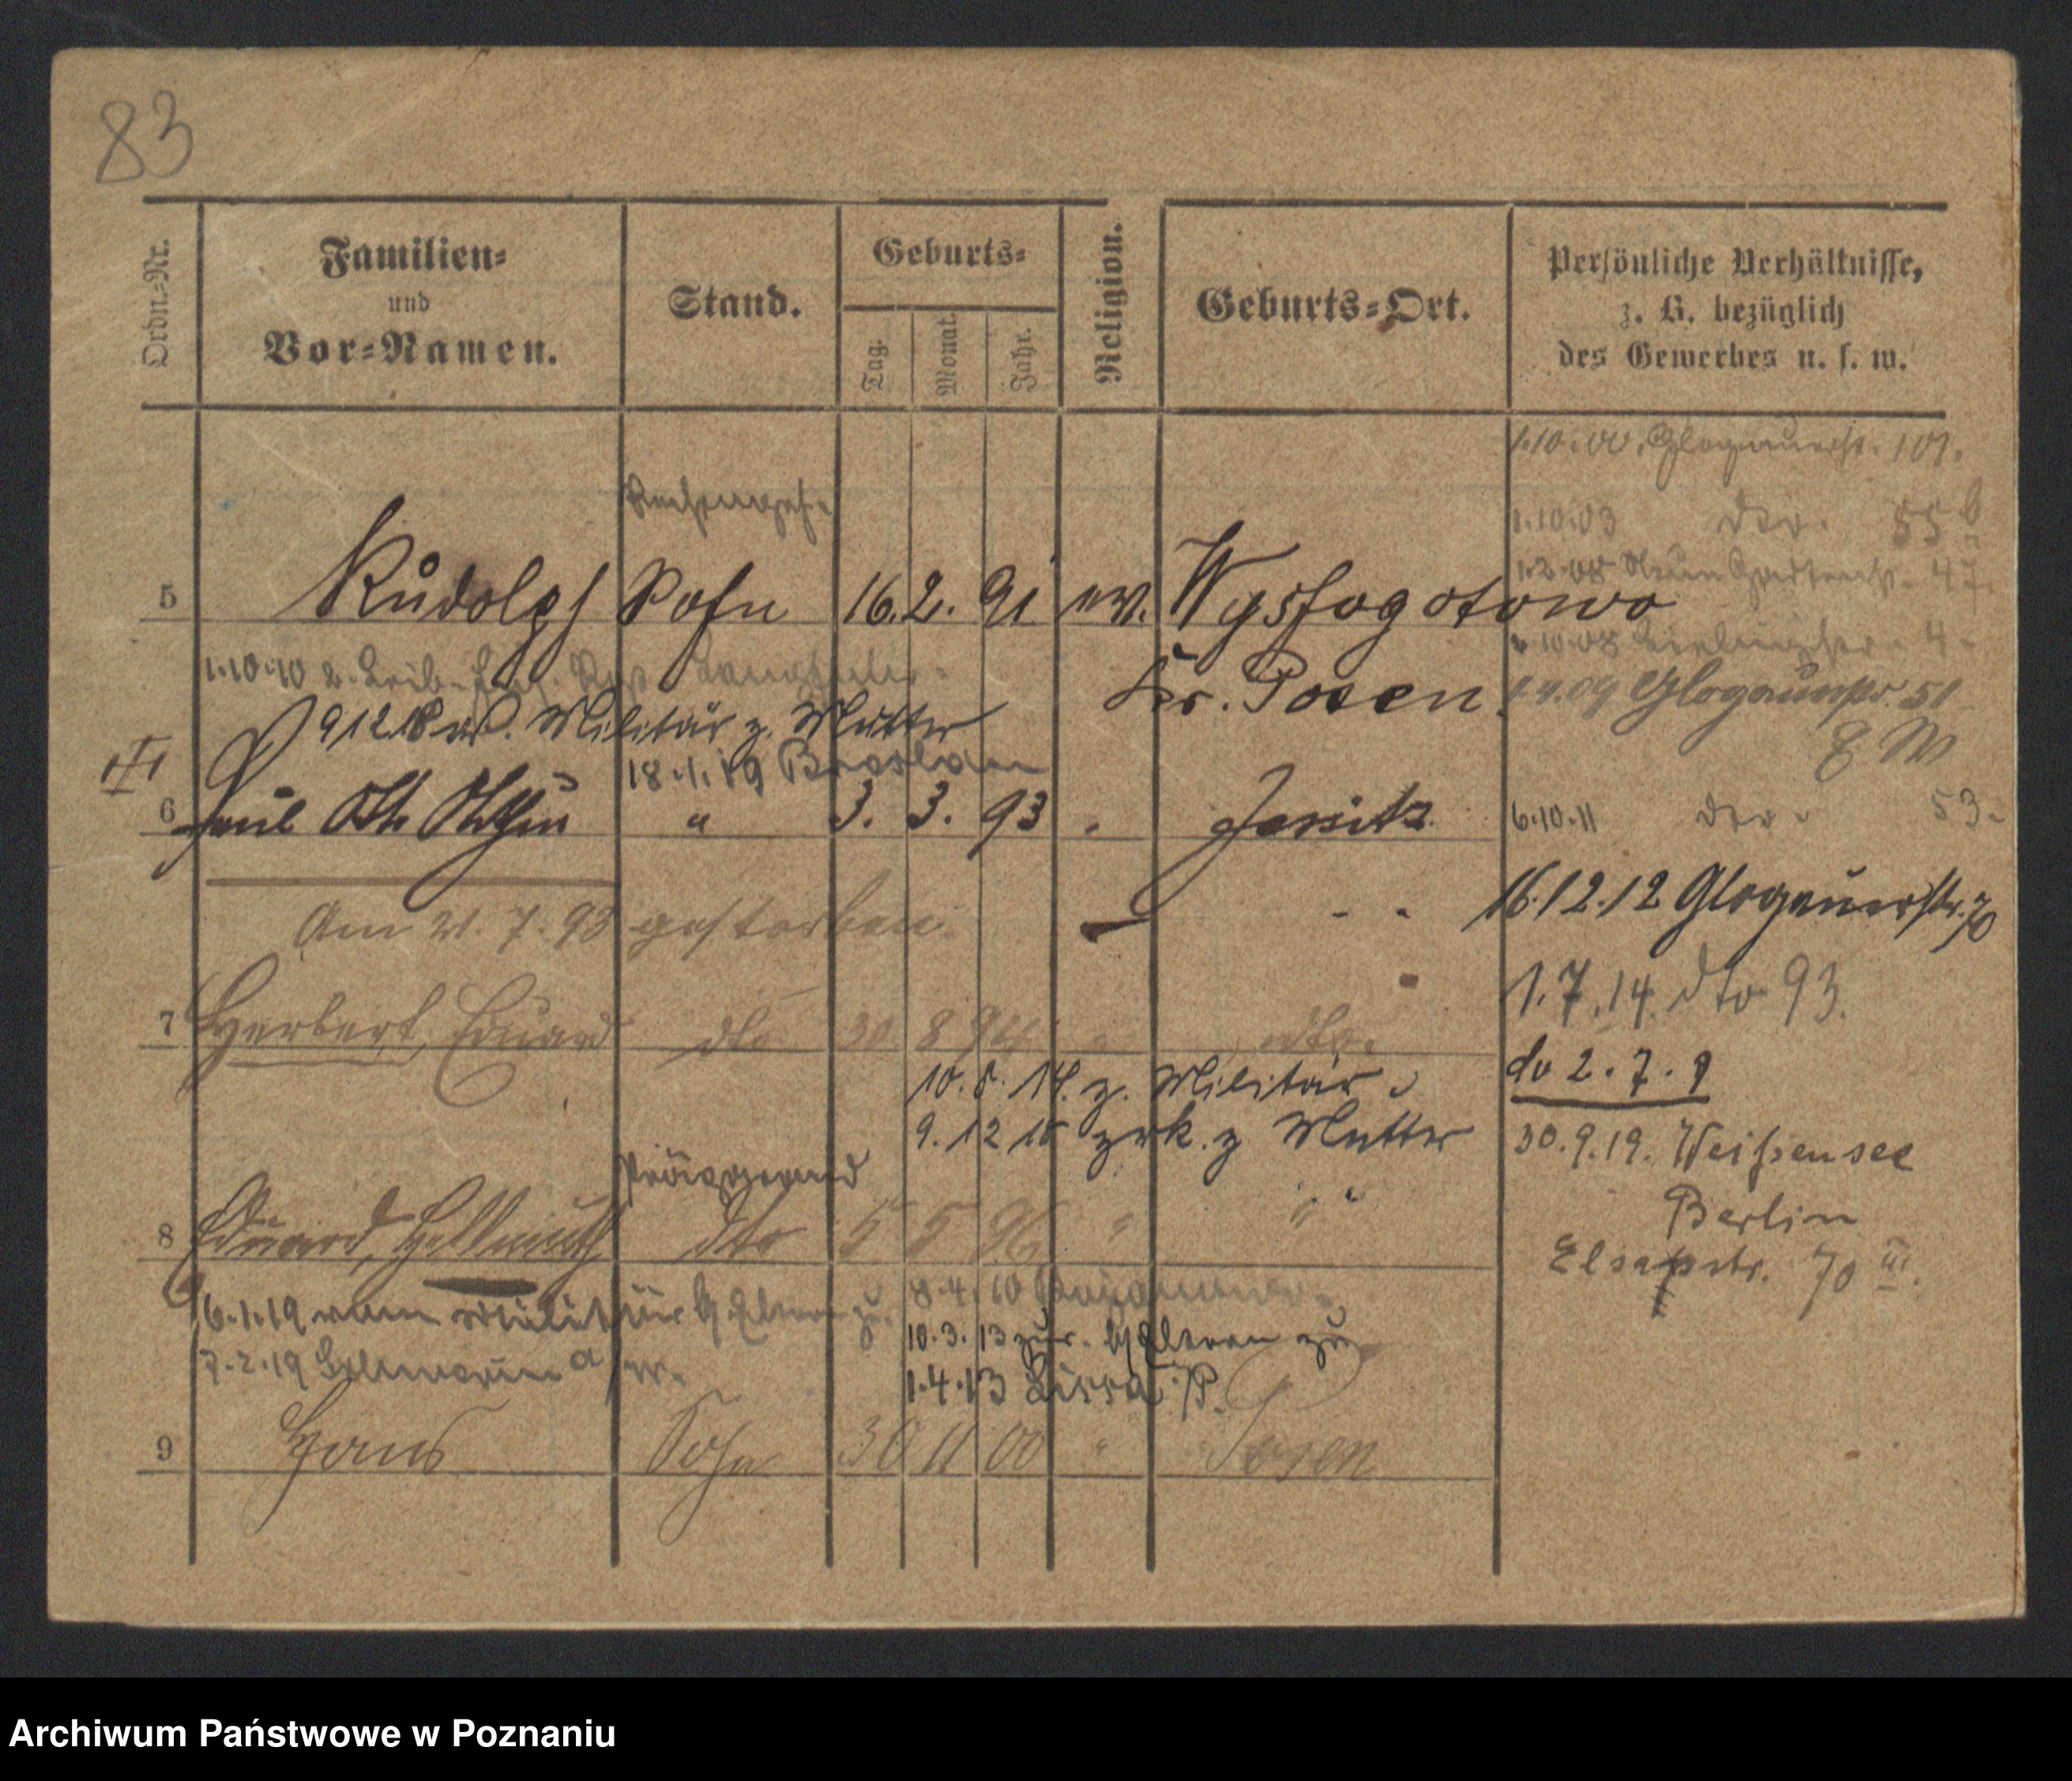 83
Ordn.-Nr.
Familien-
und
Vor-Namen.
Stand.
Geburts-
Tag.
Monat.
Jahr.
Religion.
Geburts-Ort.
Persönliche Verhältnisse,
z. B. bezüglich
des Gewerbes u. s. w.
1.10.00. Glogauerstr. 101.
1.10.03 dto. 55 b
5 Rudolph Sohn 16. 2. 91 ev. Wyssogotowo
Kr. Posen
1.2.08 Neue Gartenstr. 47
2.10.08 4
1.4.09 Glogauerstr. 51
1.10.10 2. Leib-
9 12 18 Militär z. Mutter
18.1.19 Breslau
6 Paul Otto " 3. 3. 93 " Jersitz
6.10.11 dto. 53.
Am 21. 7. 93 gestorben.
16.12.12 Glogauerstr. 70
7 Herbert, Eduard dto 30 8 94 " dto.
1.7.14. dto 93.
10.8.14. z. Militär
do 2.7.9
9. 12 18 zrk. z Mutter
30.9.19. Weißensee
Berlin
Elsaßstr. 70 III.
Präparand
8 Eduard, Hellmuth dto 5 5 96 " "
6.1.19 vom Militär Eltern zu.
8.4.10
10.3.13 zur. Eltern zu
7.2.19
1.4.13 Lissa i/P.
9 Hans Sohn 30 11 00 " Posen
Archiwum Państwowe w Poznaniu